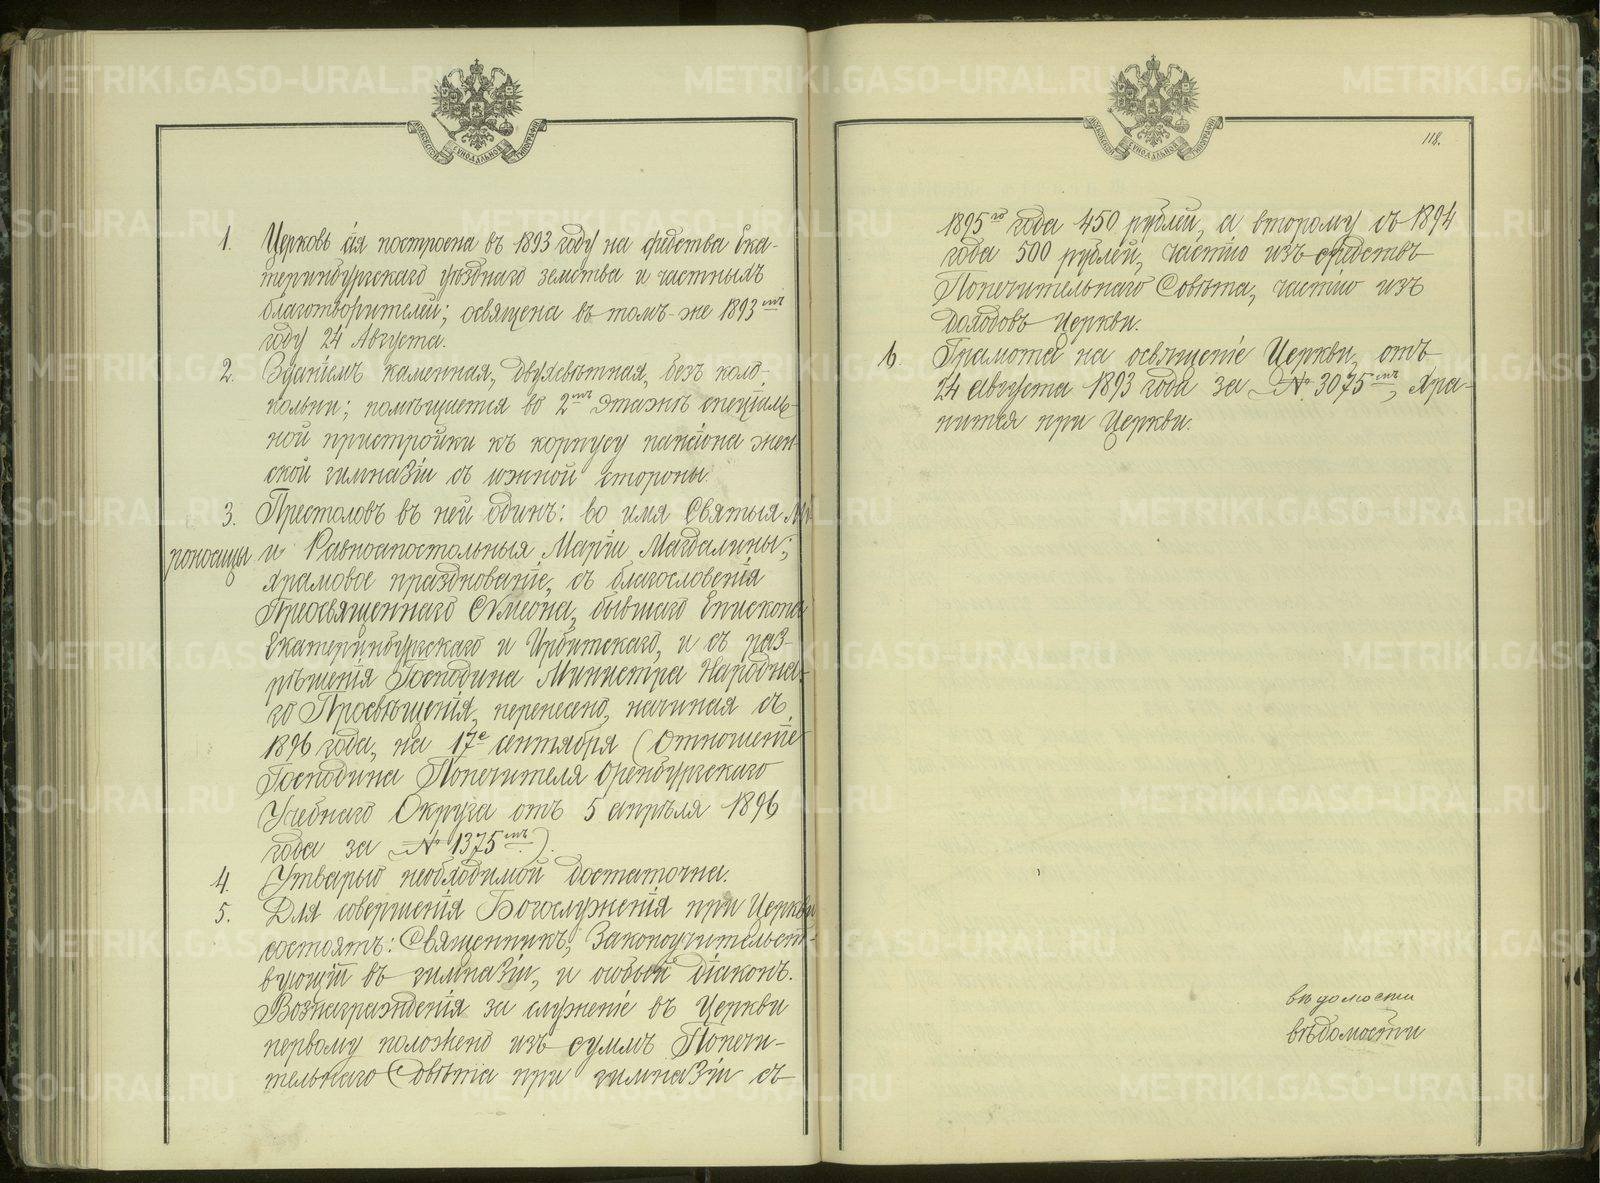 МОСКОВСКОЙ СУНОДАЛЬНОЙ ТИПОГРАФІИ
1. Церковь сія построена въ 1893 году на средства Ека-
теринбургскаго уѣзднаго земства и частныхъ
благотворителей; освящена въ томъ-же 1893мъ
году 24 Августа.
2. Зданіемъ каменная, двухсвѣтная, безъ коло-
кольни; помѣщается во 2мъ этажѣ спеціаль-
ной пристройки къ корпусу пансіона жен-
ской гимназіи съ южной стороны.
3. Престоловъ въ ней одинъ: во имя Святыя Мѵ
роносицы и Равноапостольныя Маріи Магдалины;
храмовое празднованіе, съ благословенія
Преосвященнаго Сѵмеона, бывшаго Епископа
Екатеринбургскаго и Ирбитскаго, и съ раз-
рѣшенія Господина Министра Народна-
го Просвѣщенія, перенесено, начиная съ
1896 года, на 17е сентября (Отношеніе
Господина Попечителя Оренбургскаго
Учебнаго Округа отъ 5 апрѣля 1896
года за № 1375мъ).
4. Утварью необходимой достаточна.
5. Для совершенія Богослуженія при Церкви
состоятъ: Священникъ, Законоучительст-
вующій въ гимназіи, и особый діаконъ.
Вознагражденія за служеніе въ Церкви
первому положено изъ суммъ Попечи-
тельнаго Совѣта при гимназіи съ
МОСКОВСКОЙ СУНОДАЛЬНОЙ ТИПОГРАФІИ
118.
1895го года 450 рублей, а второму съ 1894
года 500 рублей, частію изъ средствъ
Попечительнаго Совѣта, частію изъ
доходовъ Церкви.
6. Грамота на освященіе Церкви, отъ
24 августа 1893 года за № 3075мъ, хра-
нится при Церкви.
вѣдомости
вѣдомости
METRIKI.GASO-URAL.RU